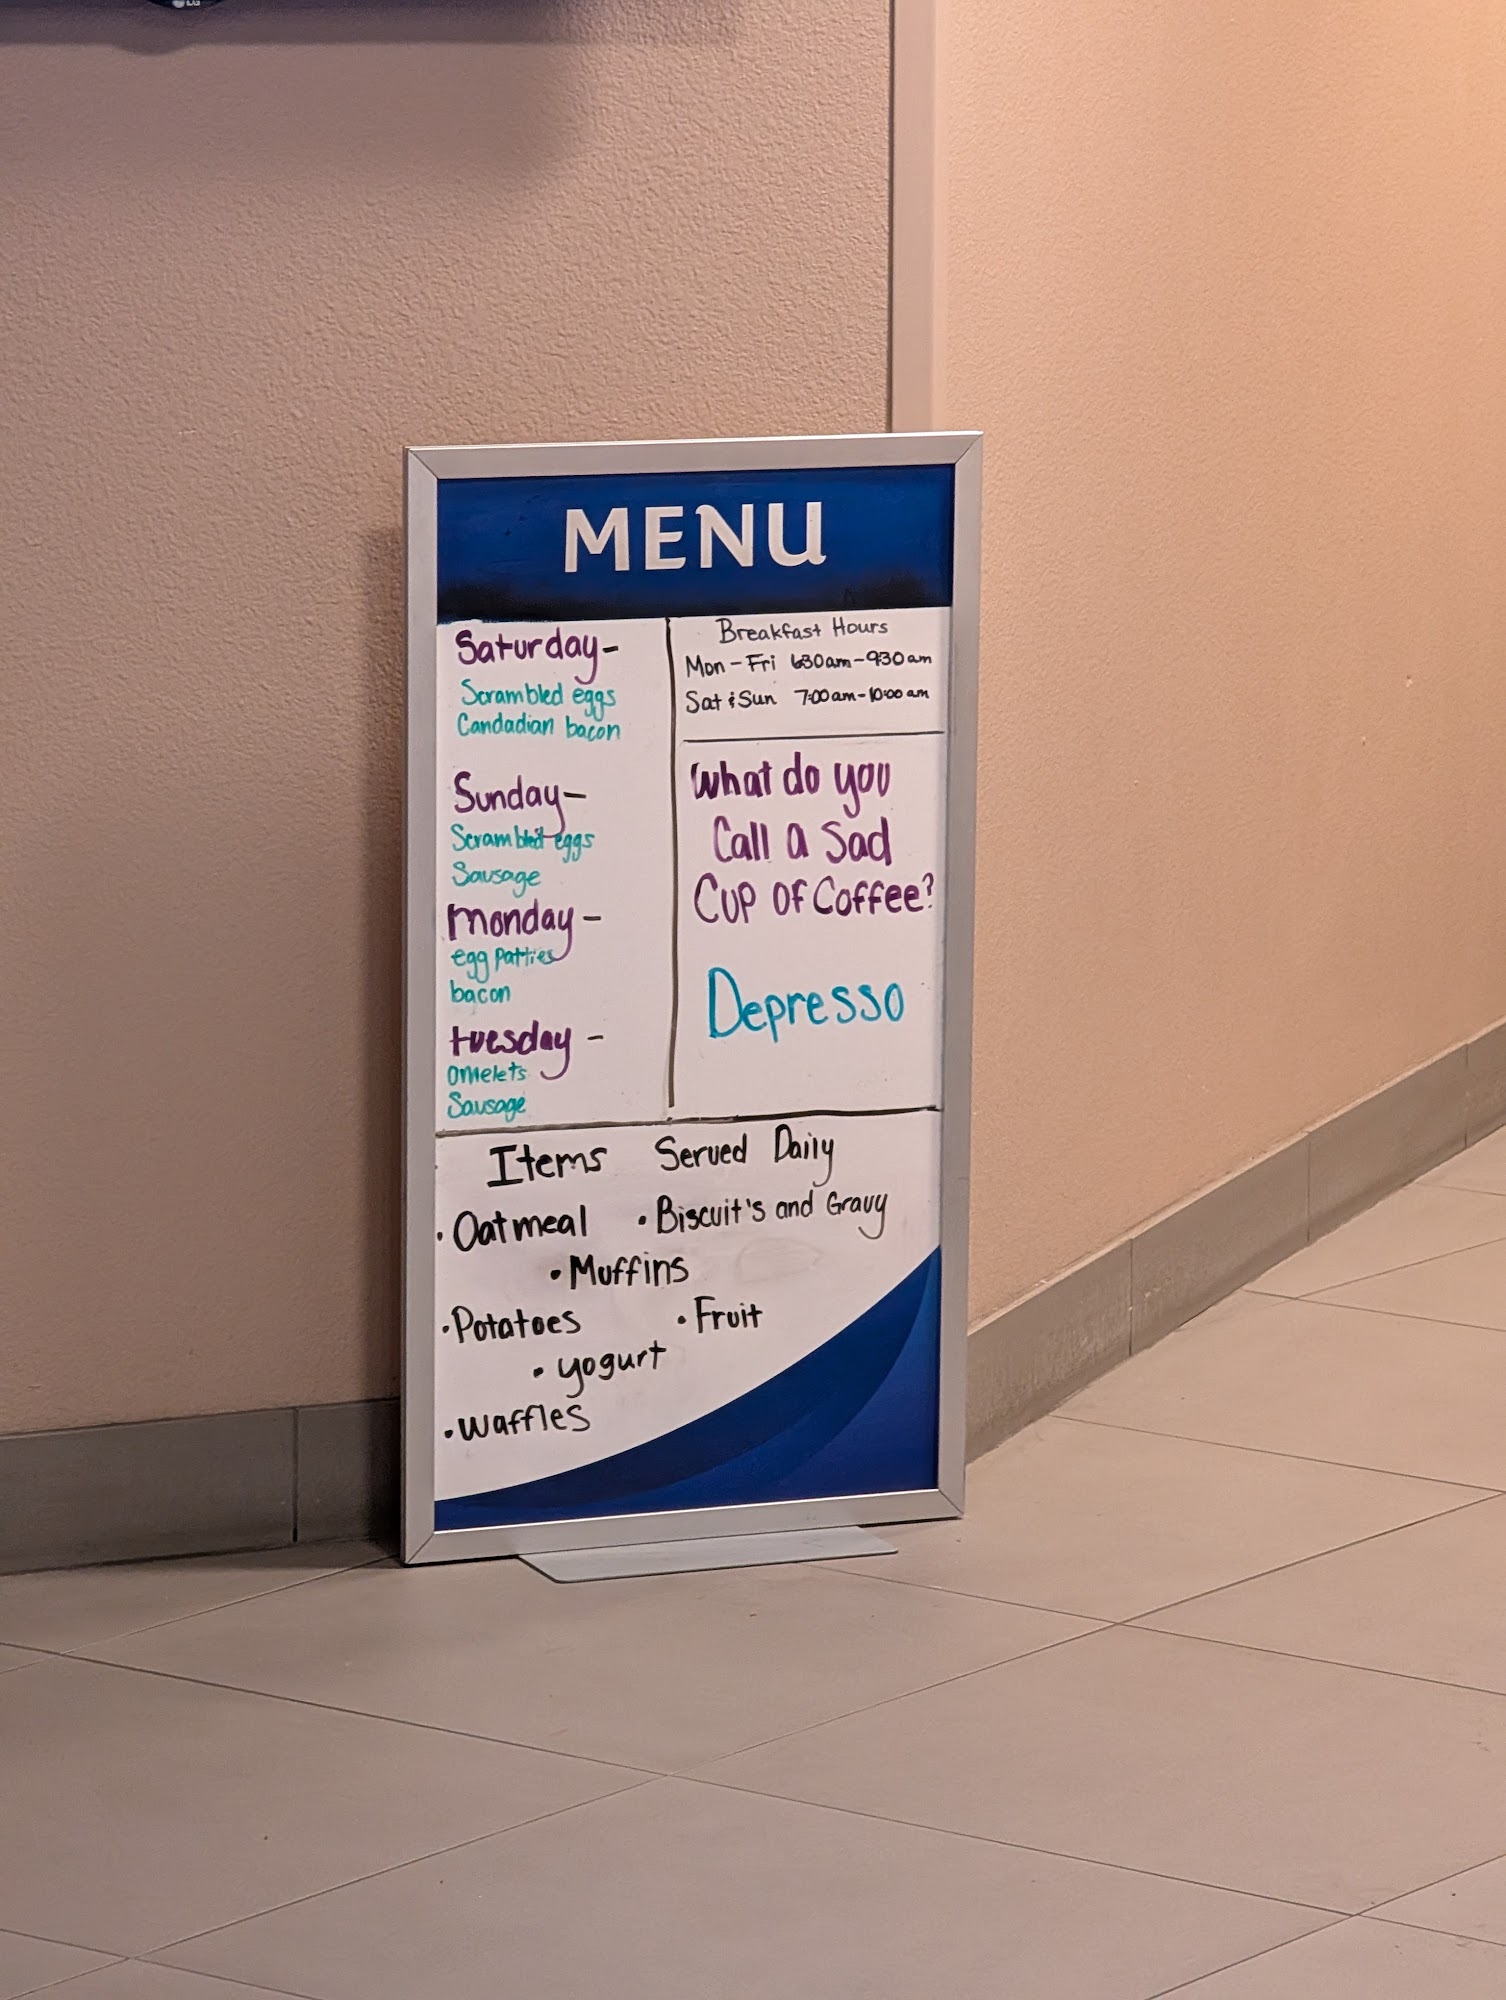 MENU
Saturday-
Scrambled eggs
Candadian bacon
Sunday-
Scrambled eggs
Sausage
Monday -
egg patties
bacon
tuesday -
omelets
Sausage
Breakfast Hours
Mon - Fri 6:30am-9:30am
Sat & Sun 7:00am-10:00am
What do you
Call a Sad
Cup of Coffee?
Depresso
Items Served Daily
• Oatmeal • Biscuit's and Gravy
• Muffins
• Potatoes • Fruit
• yogurt
• waffles